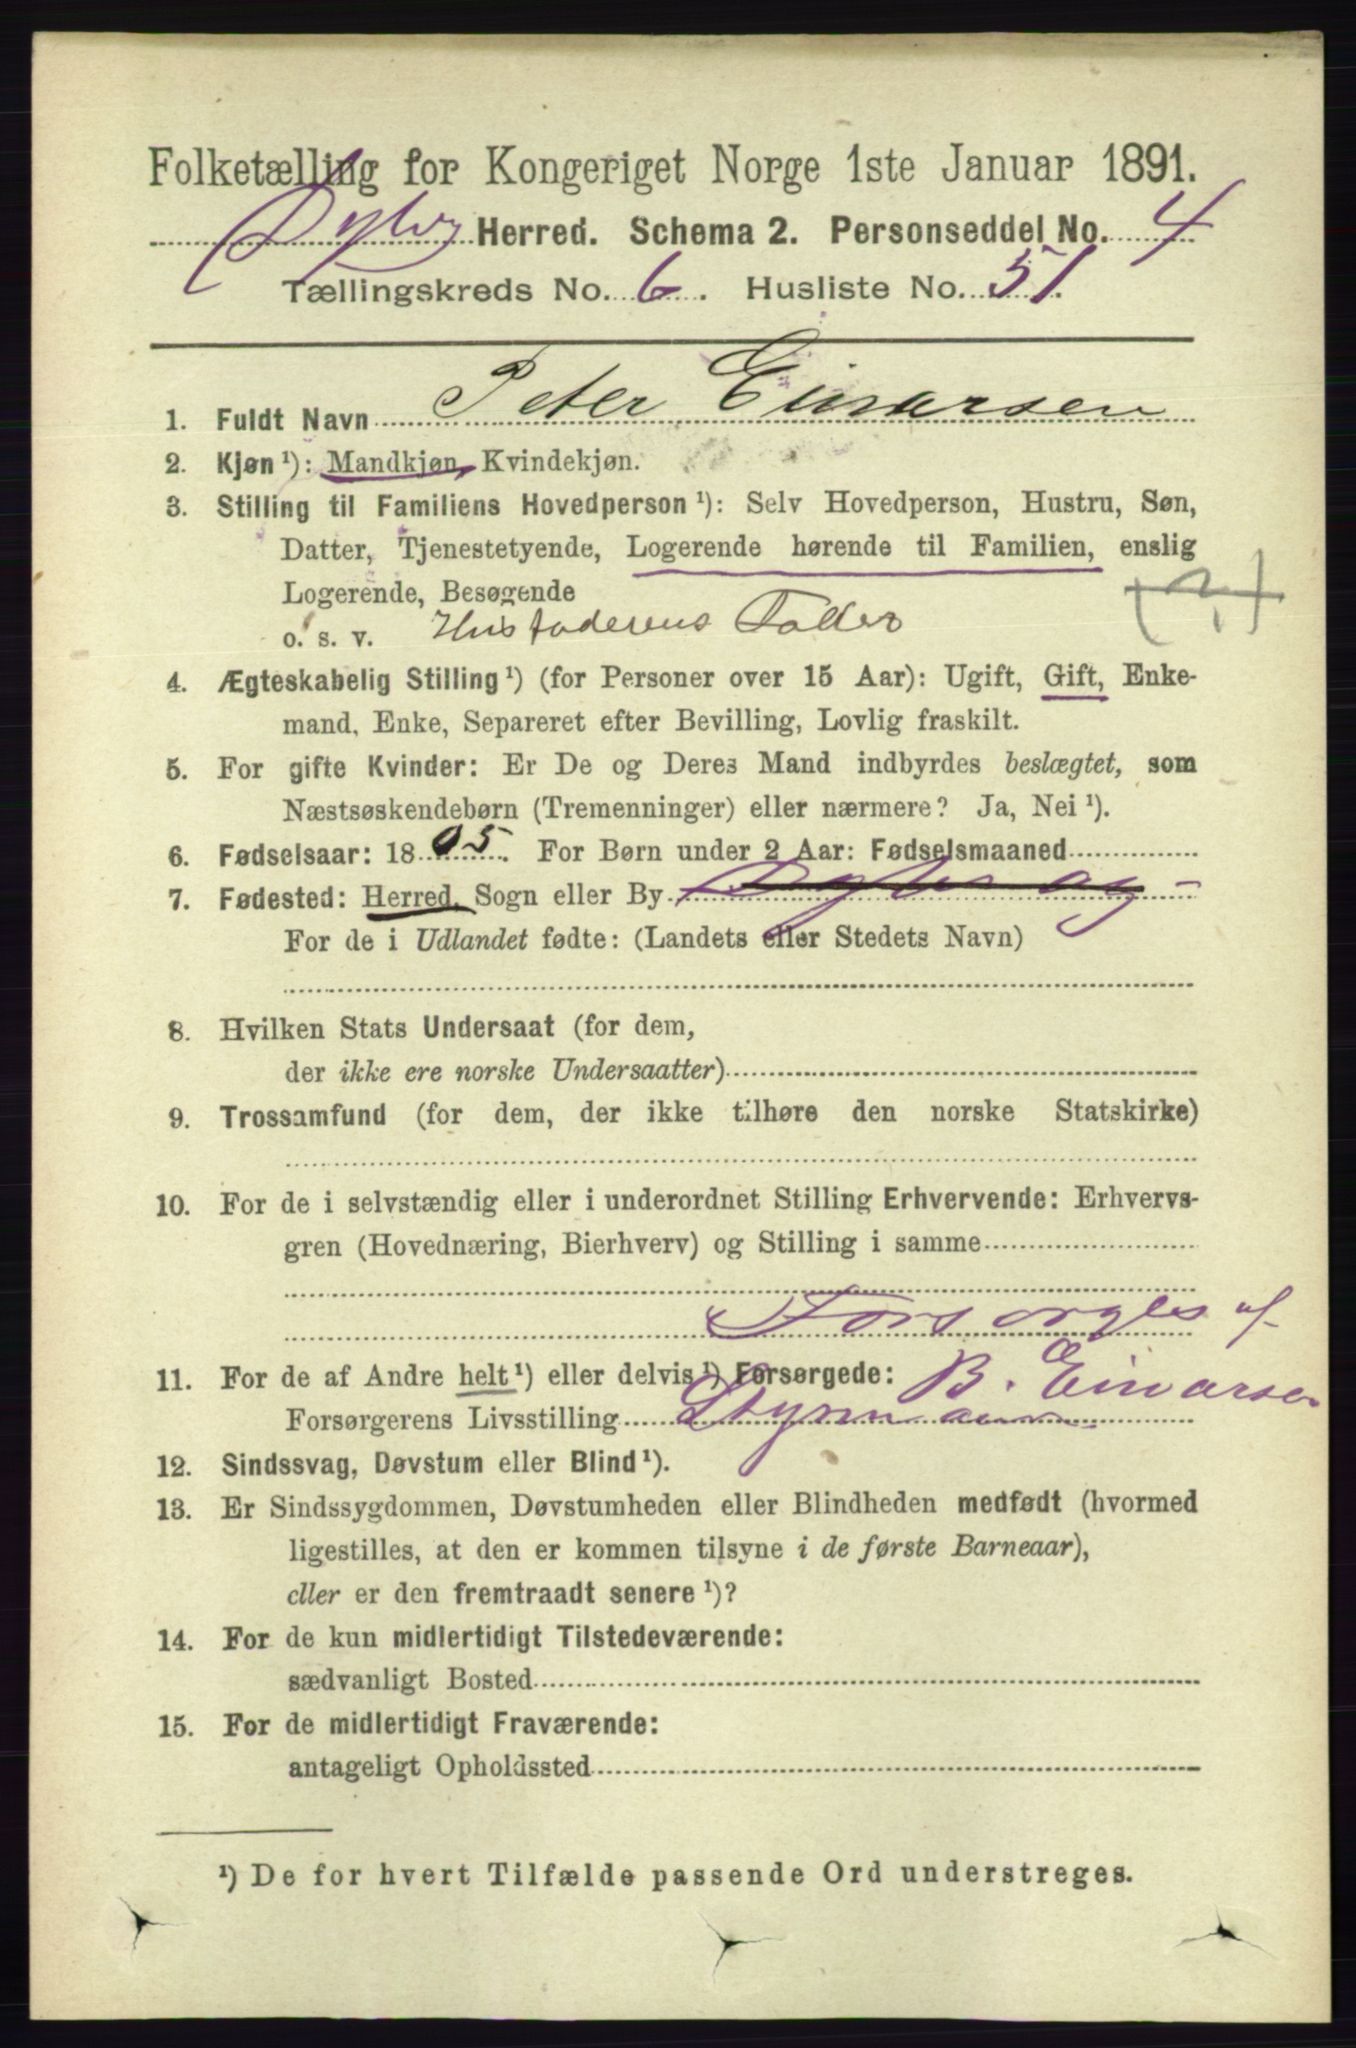 Folketælling for Kongeriget Norge 1ste Januar 1891.
Dybvåg Herred. Schema 2. Personseddel No. 4
Tællingskreds No. 6. Husliste No. 51.
1. Fuldt Navn Peter Einarsen
2. Kjøn ¹): Mandkjøn, Kvindekjøn.
3. Stilling til Familiens Hovedperson ¹): Selv Hovedperson, Hustru, Søn,
Datter, Tjenestetyende, Logerende hørende til Familien, enslig
Logerende, Besøgende
o. s. v. Husfaderens Fader
4. Ægteskabelig Stilling ¹) (for Personer over 15 Aar): Ugift, Gift, Enke-
mand, Enke, Separeret efter Bevilling, Lovlig fraskilt.
5. For gifte Kvinder: Er De og Deres Mand indbyrdes beslægtet, som
Næstsøskendebørn (Tremenninger) eller nærmere? Ja, Nei ¹).
6. Fødselsaar: 1805. For Børn under 2 Aar: Fødselsmaaned
7. Fødested: Herred, Sogn eller By
For de i Udlandet fødte: (Landets eller Stedets Navn)
8. Hvilken Stats Undersaat (for dem,
der ikke ere norske Undersaatter)
9. Trossamfund (for dem, der ikke tilhøre den norske Statskirke)
10. For de i selvstændig eller i underordnet Stilling Erhvervende: Erhvervs-
gren (Hovednæring, Bierhverv) og Stilling i samme
Forsorges af
11. For de af Andre helt ¹) eller delvis ¹) Forsørgede: B. Einarsen
Forsørgerens Livsstilling Styrmann
12. Sindssvag, Døvstum eller Blind ¹).
13. Er Sindssygdommen, Døvstumheden eller Blindheden medfødt (hvormed
ligestilles, at den er kommen tilsyne i de første Barneaar),
eller er den fremtraadt senere ¹)?
14. For de kun midlertidigt Tilstedeværende:
sædvanligt Bosted
15. For de midlertidigt Fraværende:
antageligt Opholdssted
¹) De for hvert Tilfælde passende Ord understreges.